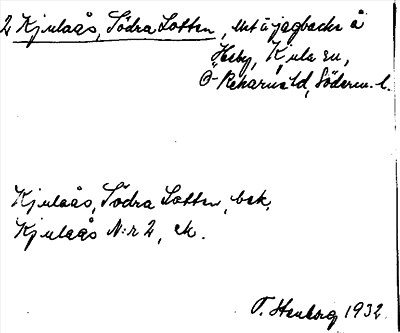 2 Kjulaås, Södra Lotten, utt ä jagbacke å
Heby, Kjula sn,
Ö-Rekarne hd, Söderm. l.
Kjulaås, Södra Lotten, bek.
Kjulaås N:r 2, ek.
1932